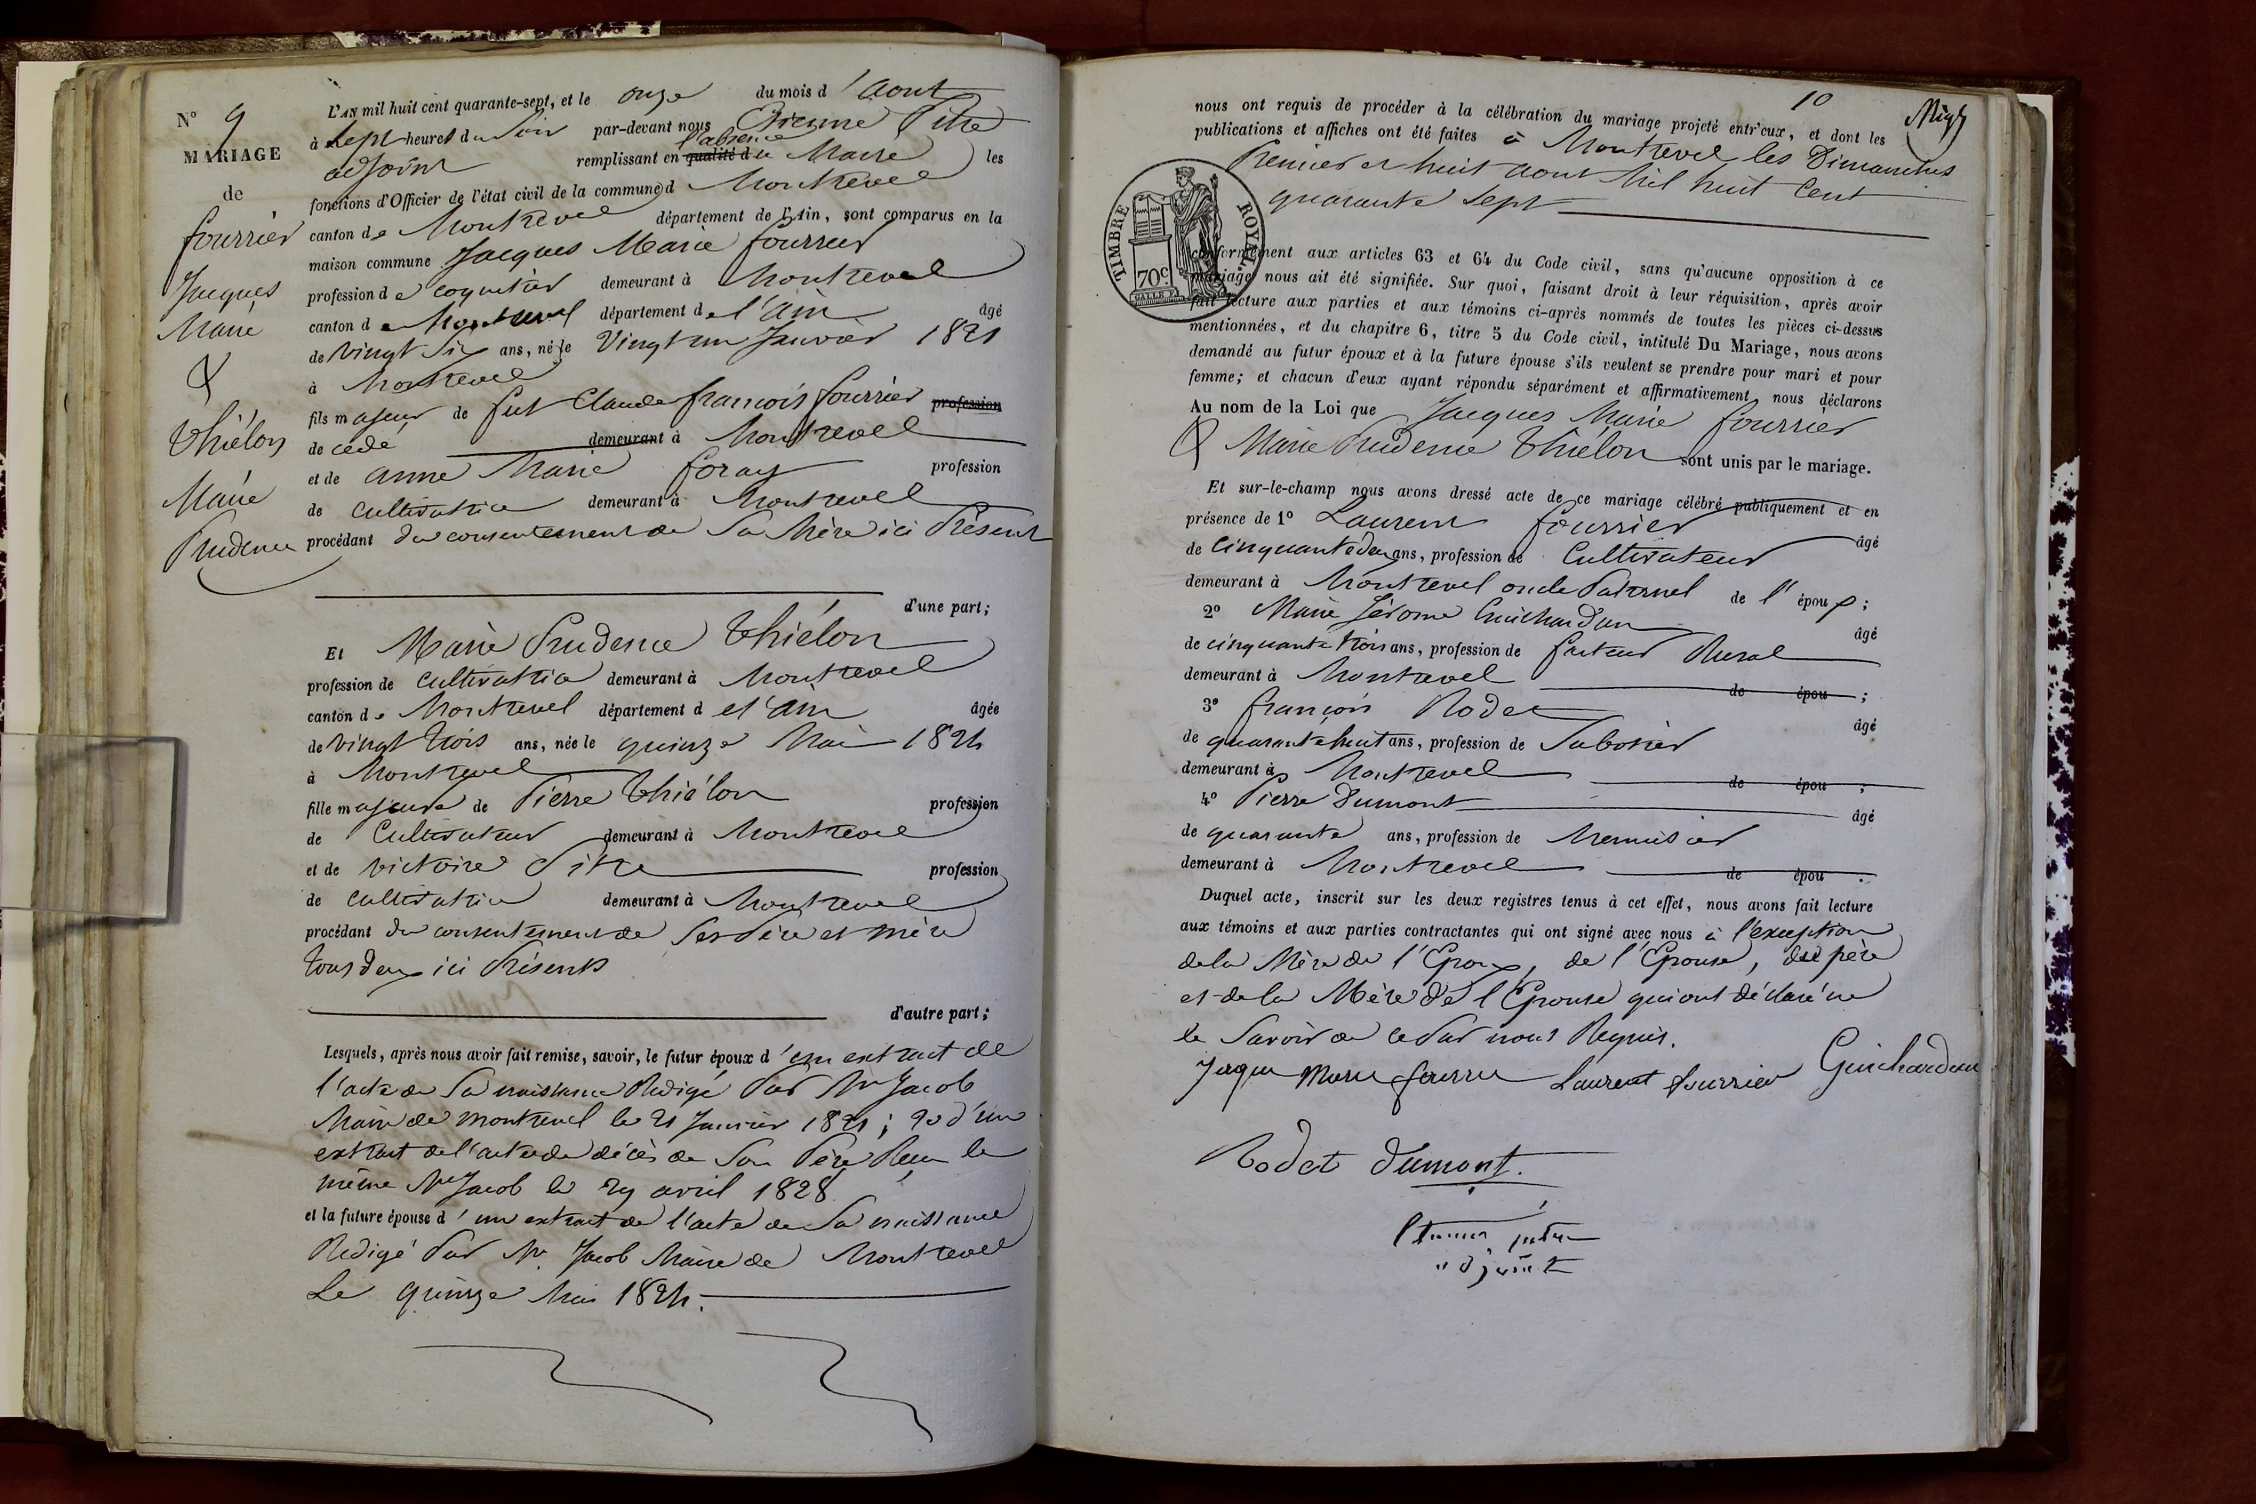 N° 9
MARIAGE
de
fourrier
Jacques
Marie
&
Thiélon
Marie
Prudence
L'AN mil huit cent quarante-sept, et le onze du mois d'aout
à Sept heures du Soir par-devant nous Etienne Pitre
adjoint remplissant en qualité d l'absence du Maire les
fonctions d'Officier de l'état civil de la commune d Montrevel
canton de Montrevel département de l'Ain, sont comparus en la
maison commune Jacques Marie fourrier
profession de coquetier demeurant à Montrevel
canton de Montrevel département de l'ain âgé
de vingt Six ans, né le Vingt un Janvier 1821
à Montrevel
fils majeur de feu Claude françois fourrier profession
de cédé demeurant à Montrevel
et de anne Marie foray profession
de cultivatrice demeurant à Montrevel
procédant du consentement de Sa Mère ici Présent
d'une part;
Et Marie Prudence Thiélon
profession de cultivatrice demeurant à Montrevel
canton de Montrevel département de l'ain âgée
de vingt trois ans, née le quinze Mai 1824
à Montrevel
fille majeure de Pierre Thiélon profession
de Cultivateur demeurant à Montrevel
et de victoire Pitre profession
de cultivatrice demeurant à Montrevel
procédant du consentement de Ses Père et mère
tous deux ici Présents
d'autre part;
Lesquels, après nous avoir fait remise, savoir, le futur époux d'un extrait de
l'acte de Sa naissance Redigé Par Mr Jacob
Maire de montrevel le 21 Janvier 1821; 2o d'un
extrait de l'acte de décès de Son Père Reçu le
même Mr Jacob le 29 avril 1828
et la future épouse d'un extrait de l'acte de Sa naissance
Redigé Par Mr. Jacob Maire de Montrevel
Le quinze Mai 1824.
10
nous ont requis de procéder à la célébration du mariage projeté entr'eux, et dont les
publications et affiches ont été faites à Montrevel les Dimanches
Premier et huit aout Mil huit Cent
quarante Sept
TIMBRE ROYAL.
70c.
conformément aux articles 63 et 64 du Code civil, sans qu'aucune opposition à ce
mariage nous ait été signifiée. Sur quoi, faisant droit à leur réquisition, après avoir
fait lecture aux parties et aux témoins ci-après nommés de toutes les pièces ci-dessus
mentionnées, et du chapitre 6, titre 5 du Code civil, intitulé Du Mariage, nous avons
demandé au futur époux et à la future épouse s'ils veulent se prendre pour mari et pour
femme; et chacun d'eux ayant répondu séparément et affirmativement, nous déclarons
Au nom de la Loi que Jacques Marie fourrier
& Marie Prudence Thiélon sont unis par le mariage.
Et sur-le-champ nous avons dressé acte de ce mariage célébré publiquement et en
présence de 1° Laurent fourrier âgé
de Cinquante deux ans, profession de Cultivateur
demeurant à Montrevel oncle Paternel de l'époux;
2° Marie Jérome Guichardan âgé
de cinquante trois ans, profession de facteur Rural
demeurant à Montrevel de épou ;
3° françois Rodet âgé
de quarante huit ans, profession de Sabotier
demeurant à Montrevel de épou ;
4° Pierre Dumont âgé
de quarante ans, profession de Menuisier
demeurant à Montrevel de épou .
Duquel acte, inscrit sur les deux registres tenus à cet effet, nous avons fait lecture
aux témoins et aux parties contractantes qui ont signé avec nous à l'exception
de la Mère de l'Epoux, de l'Epouse, du père
et de la Mère de l'Epouse qui ont déclaré ne
le Savoir de ce Par nous Requis.
Laurent fourrier Guichardan
Rodet Dumont.
adjoint